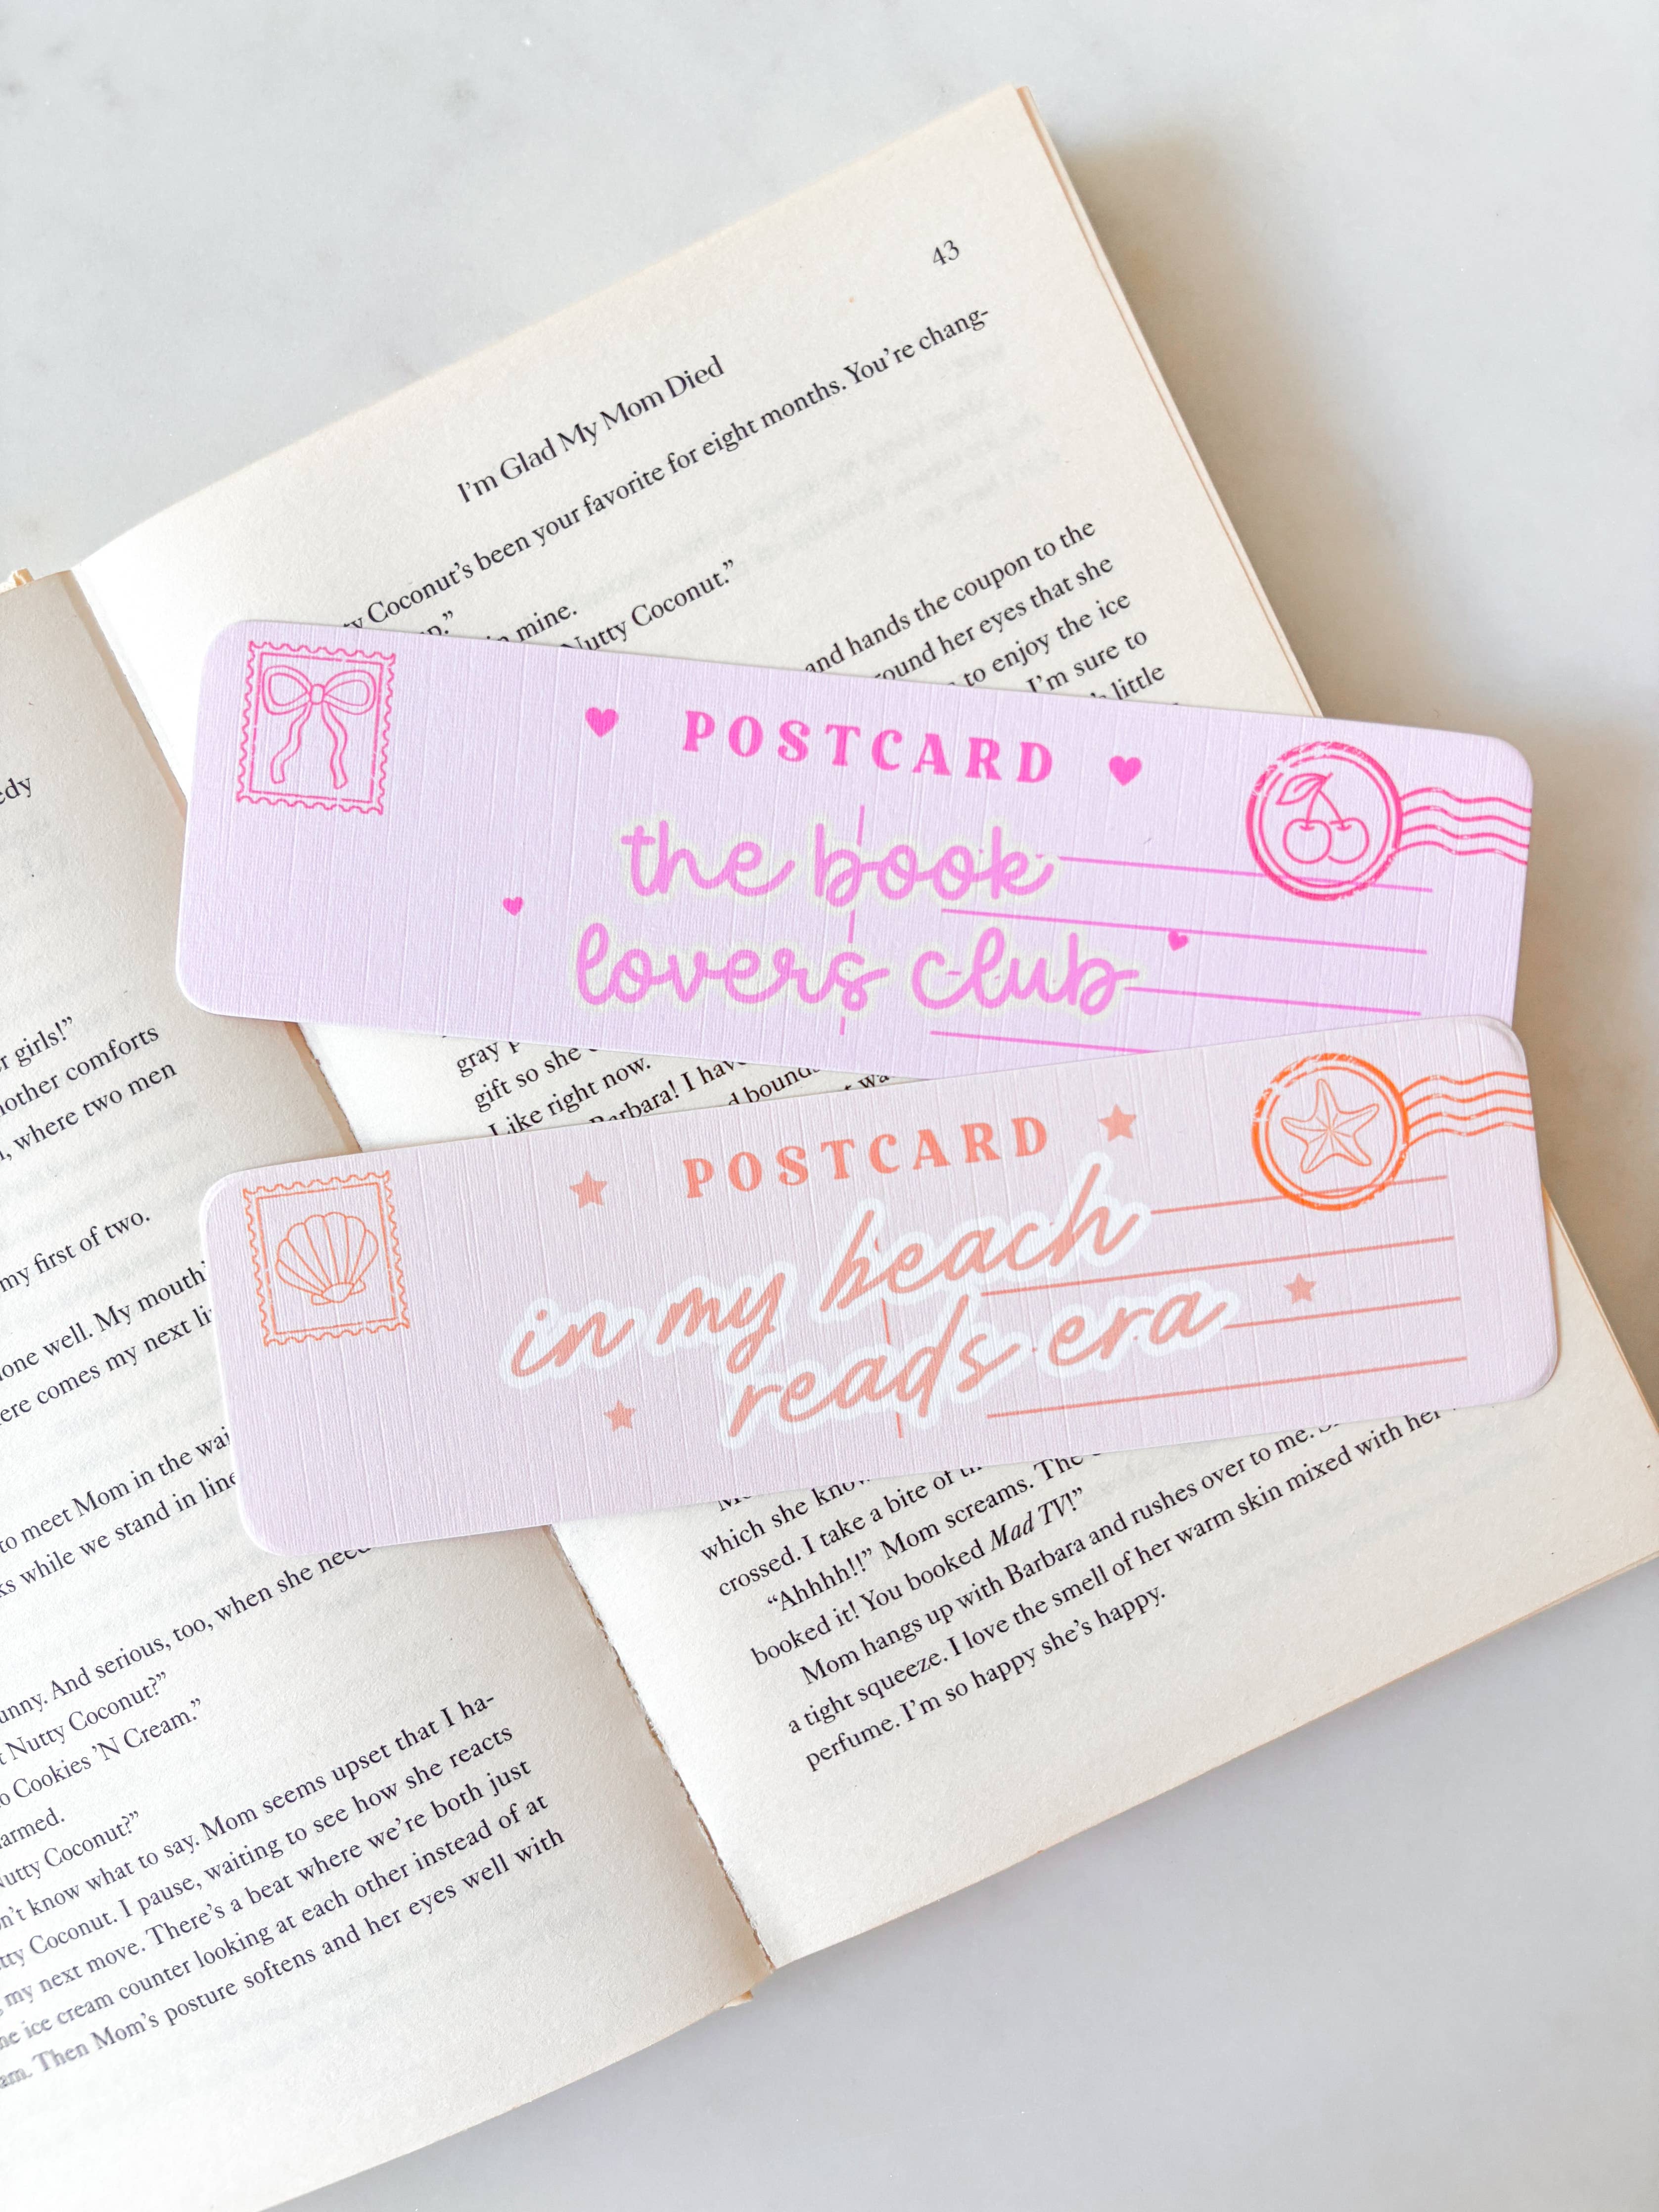 edy
r girls!”
other comforts
, where two men
my first of two.
one well. My mouth
ere comes my next
to meet Mom in the
ks while we stand in line
unny. And serious, too, when she
t Nutty Coconut?”
o Cookies ’N Cream.”
armed.
Nutty Coconut?”
n’t know what to say. Mom seems upset that I ha-
tty Coconut. I pause, waiting to see how she reacts
my next move. There’s a beat where we’re both just
he ice cream counter looking at each other instead of at
am. Then Mom’s posture softens and her eyes well with
I’m Glad My Mom Died
43
ty Coconut’s been your favorite for eight months. You’re chang-
p.”
mine.
Nutty Coconut.”
and hands the coupon to the
round her eyes that she
to enjoy the ice
I’m sure to
little
POSTCARD
the book
lovers club
gray
gift so she
Like right now.
Barbara! I have
d bounds
POSTCARD
in my beach
reads era
which she
crossed. I take a bite of
“Ahhhh!!” Mom screams. The
booked it! You booked Mad TV!”
Mom hangs up with Barbara and rushes over to me.
a tight squeeze. I love the smell of her warm skin mixed with her
perfume. I’m so happy she’s happy.